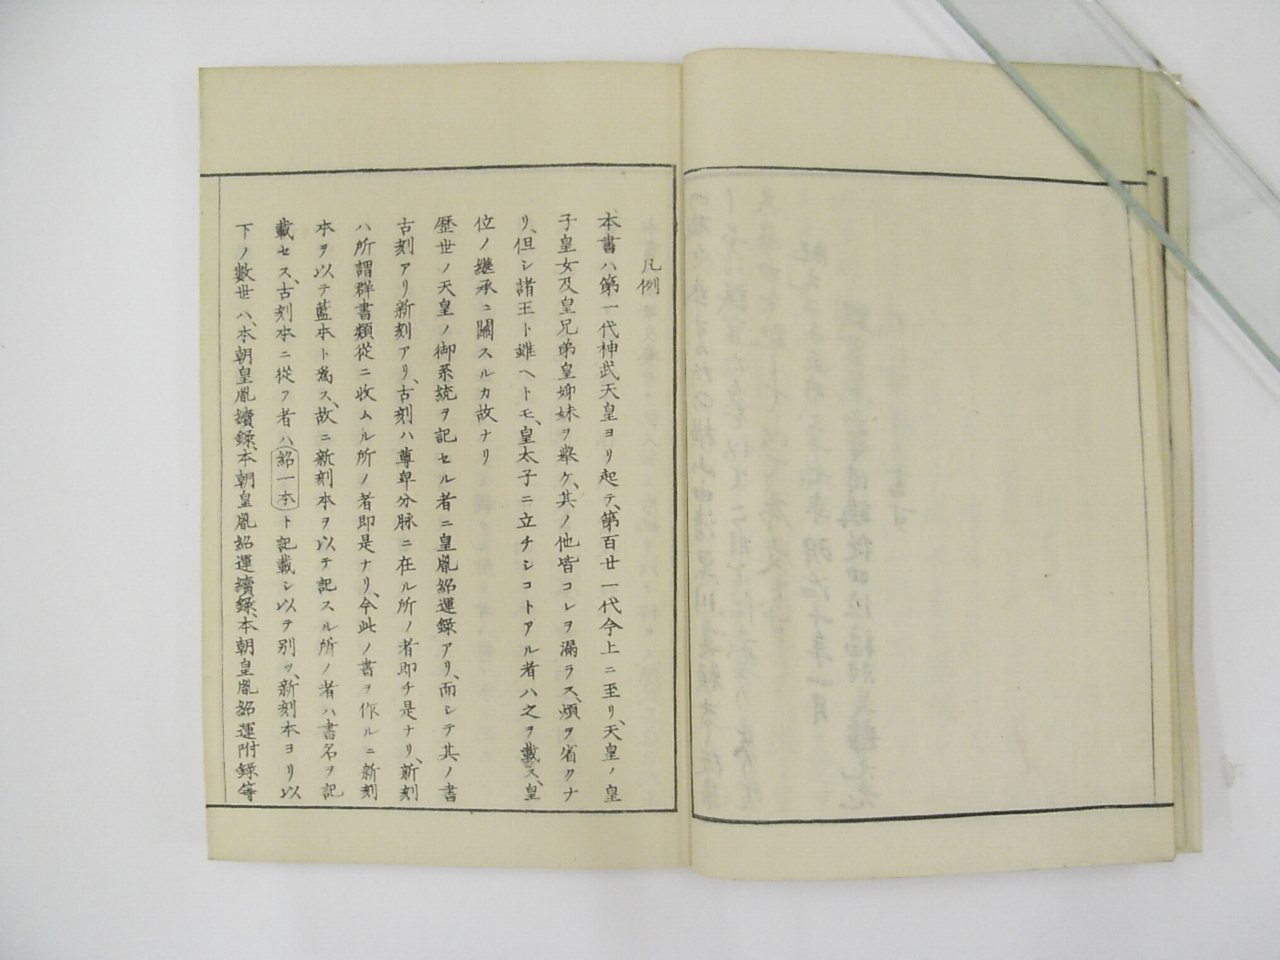 凡例
本書ハ第一代神武天皇ヨリ起テ、第百廿一代今上ニ至リ、天皇ノ皇
子皇女及皇兄弟皇姉妹ヲ擧ケ、其ノ他皆コレヲ漏ラス、煩ヲ省クナ
リ、但シ諸王ト雖ヘトモ、皇太子ニ立チシコトアル者ハ之ヲ載ス、皇
位ノ繼承ニ關スルカ故ナリ
歴世ノ天皇ノ御系統ヲ記セル者ニ皇胤紹運録アリ、而シテ其ノ書
古刻アリ新刻アリ、古刻ハ尊卑分脉ニ在ル所ノ者即チ是ナリ、新刻
ハ所謂群書類從ニ收ムル所ノ者即是ナリ、今此ノ書ヲ作ルニ新刻
本ヲ以テ藍本ト爲ス、故ニ新刻本ヲ以テ記スル所ノ者ハ書名ヲ記
載セス、古刻本ニ從フ者ハ紹一本ト記載シ以テ別ツ、新刻本ヨリ以
下ノ數世ハ、本朝皇胤續録、本朝皇胤紹運續録、本朝皇胤紹運附録等